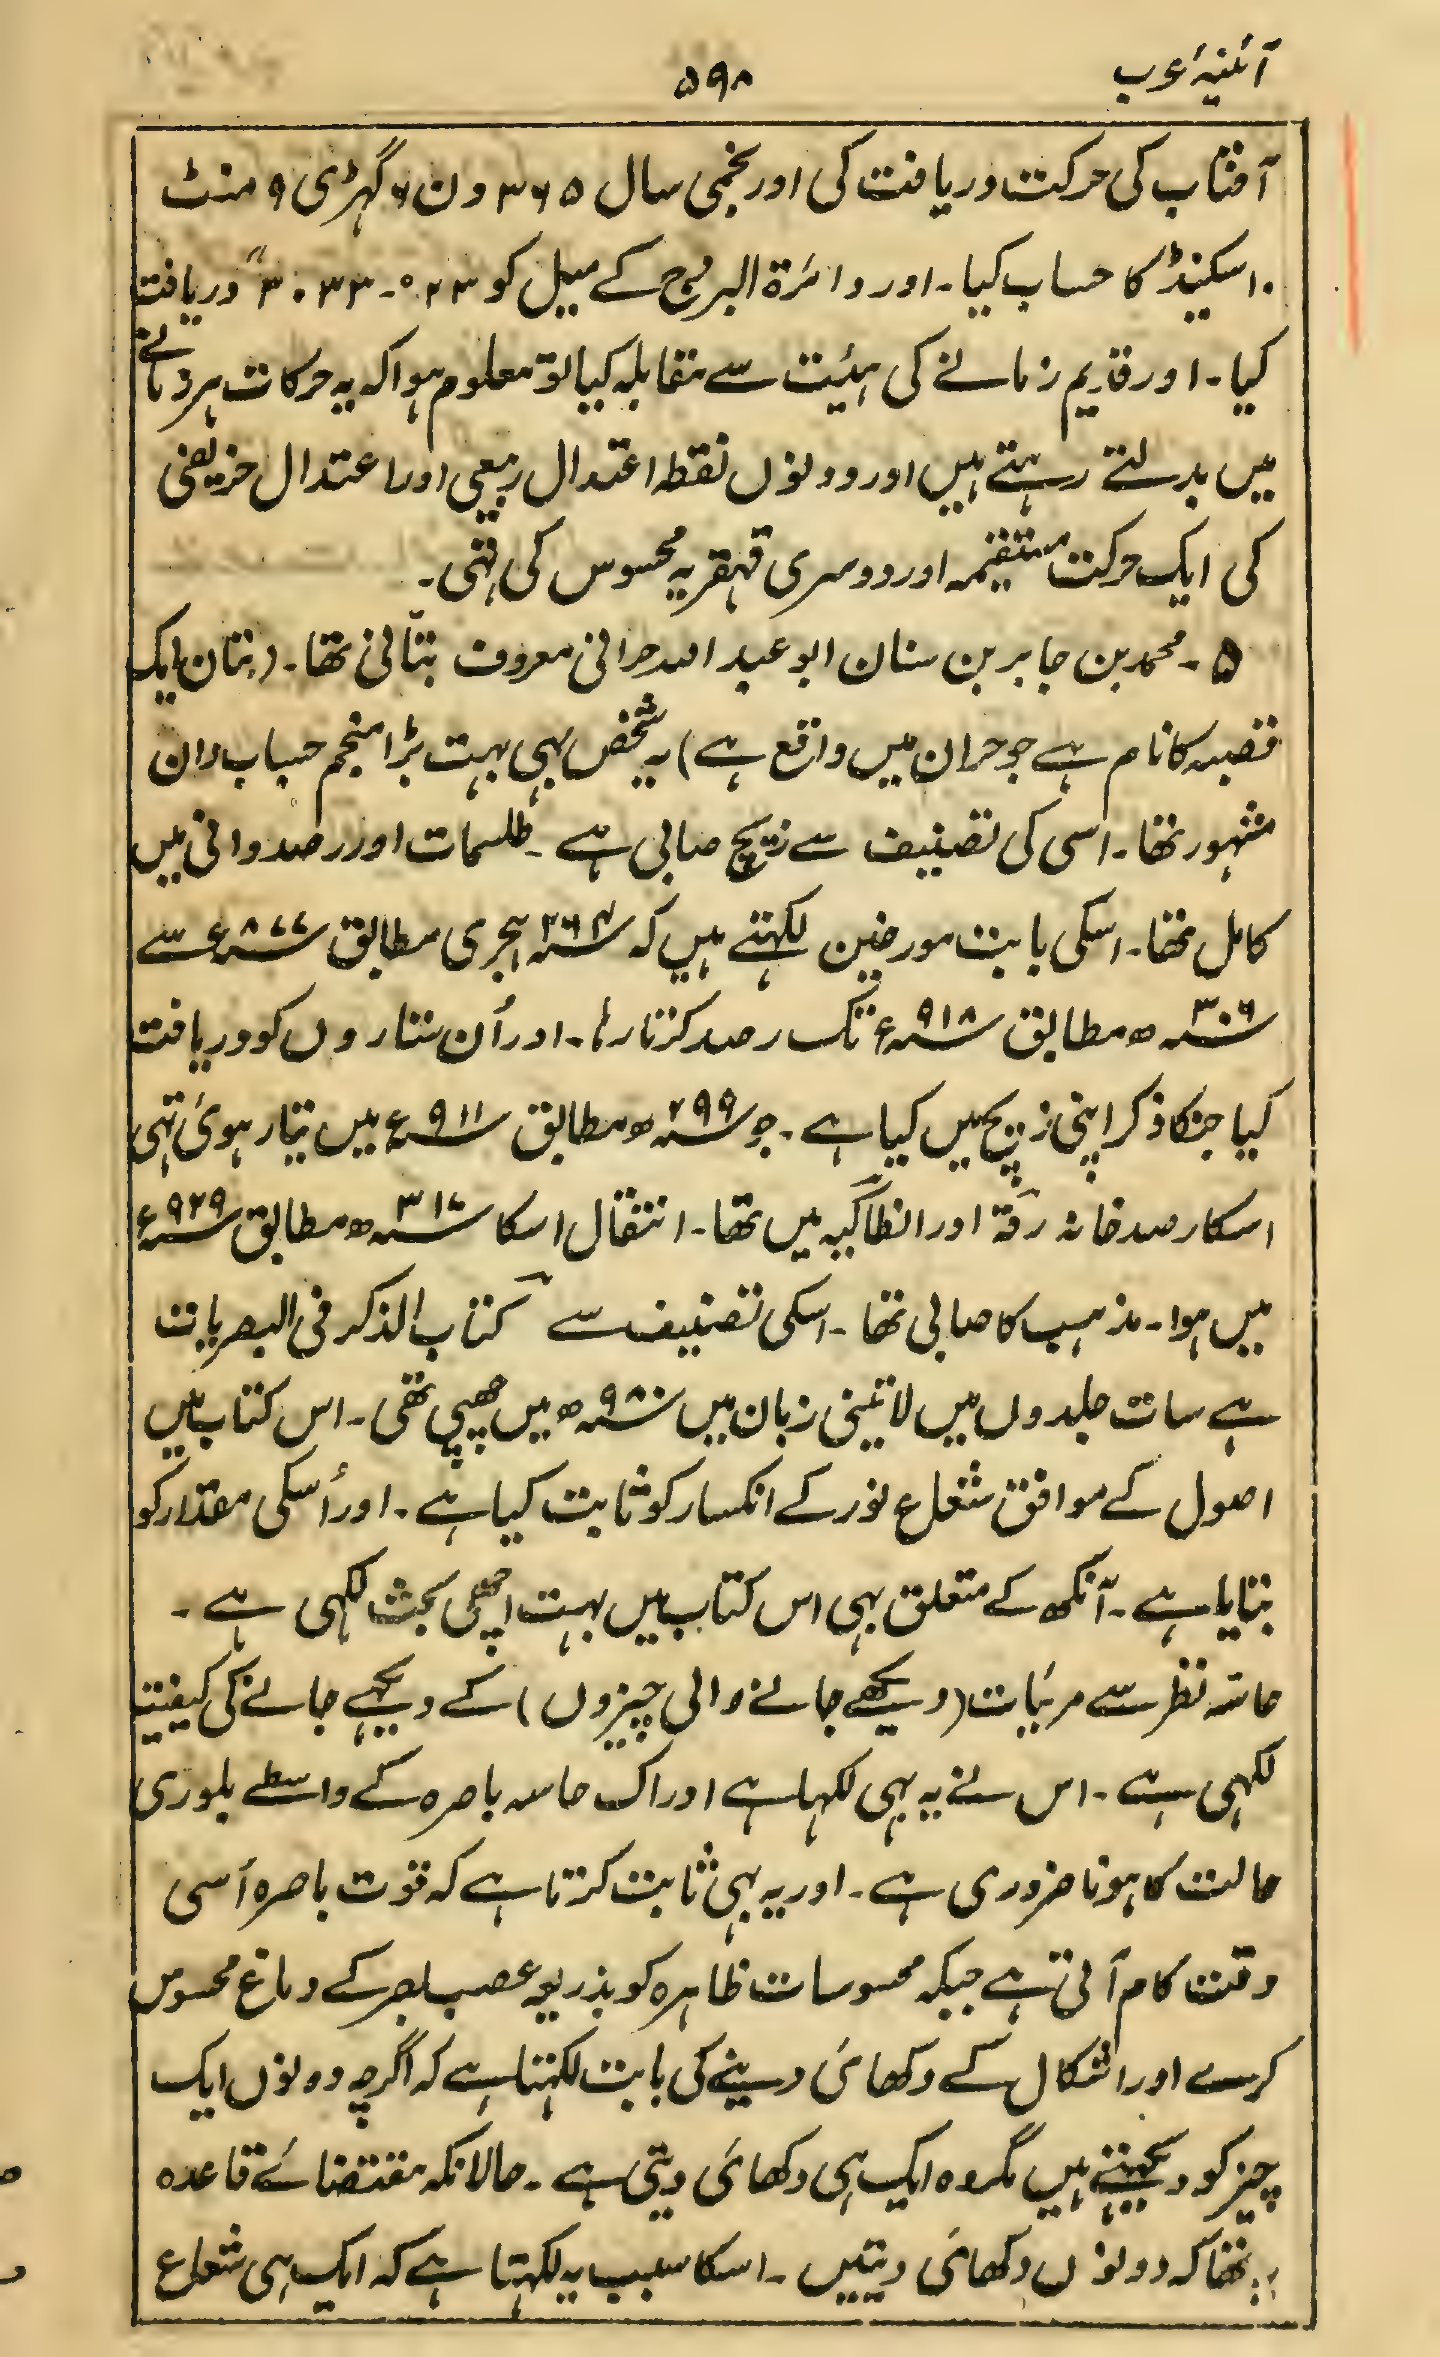 آئنیۂ عرب
۵۹۸
آفتاب کی حرکت دریافت کی اور نجمی سال ۳۶۵ دن ۶ گہڑی ۹ منٹ
۱۰ سکینڈ کا حساب کیا۔ اور دائرۃ البروج کے میل کو ۲۳°۔ ۳۳ ۳۰″ دریافت
کیا۔ اور قدیم زمانے کی ہیئت سے مقابلہ کیا تو معلوم ہوا کہ یہ حرکات ہر زمانے
میں بدلتے رہتے ہیں اور دونوں نقطہ اعتدال ربیعی اور اعتدال خریفی
کی ایک حرکت مستقیمہ اور دوسری قہقریہ محسوس کی تہی۔
۵۔ محمد بن جابر بن سنان ابو عبد اللہ حرانی معروف بتّانی تھا۔ (بتان ایک
قصبہ کا نام ہے جو حران میں واقع ہے) یہ شخص بہی بہت بڑا منجم حساب دان
مشہور تھا۔ اسی کی تصنیف سے زیچ صابی ہے۔ طلسمات اور رصد دانی میں
کامل تھا۔ اسکی بابت مورخین لکہتے ہیں کہ سنہ ۲۶۴ ہجری مطابق سنہ ۸۷۷ء سے
سنہ ۳۰۶ھ مطابق سنہ ۹۱۸ء تک رصد کرتا رہا۔ اور اُن ستاروں کو دریافت
کیا جنکا ذکر اپنی زیچ میں کیا ہے۔ جو سنہ ۲۹۹ھ مطابق سنہ ۹۱۱ء میں تیار ہوئی تہی
اسکا رصد خانہ رقۃ اور انطاکیہ میں تھا۔ انتقال اسکا سنہ ۳۱۷ھ مطابق سنہ ۹۲۹ء
میں ہوا۔ مذہب کا صابی تھا۔ اسکی تصنیف سے کتاب الذکر فی البصریات
ہے سات جلدوں میں لاتینی زبان میں سنہ ۹۸۰ھ میں چھپی تھی۔ اس کتاب میں
اصول کے موافق شعاع نور کے انکسار کو ثابت کیا ہے۔ اور اُسکی مقدار کو
بتایا ہے۔ آنکھ کے متعلق بہی اس کتاب میں بہت اچھی بحث لکہی ہے۔
حاسّہ نظر سے مرئیات (دیکھے جانے والی چیزوں) کے دیکہے جانے کی کیفیت
لکہی ہے۔ اس نے یہ بہی لکہا ہے ادراک حاسہ باصرہ کے واسطے بلوری
حالت کا ہونا ضروری ہے۔ اور یہ بہی ثابت کرتا ہے کہ قوت باصرہ اُسی
وقت کام آتی ہے جبکہ محسوسات ظاہرہ کو بذریعہ عصب بصر کے دماغ محسوس
کرے اور اشکال کے دکھائی دینے کی بابت لکہتا ہے کہ اگرچہ دونوں ایک
چیز کو دیکہتے ہیں مگر وہ ایک ہی دکھائی دیتی ہے۔ حالانکہ مقتضائے قاعدہ
یہ تھا کہ دونوں دکھائی دیتیں۔ اسکا سبب یہ لکہتا ہے کہ ایک ہی شعاع